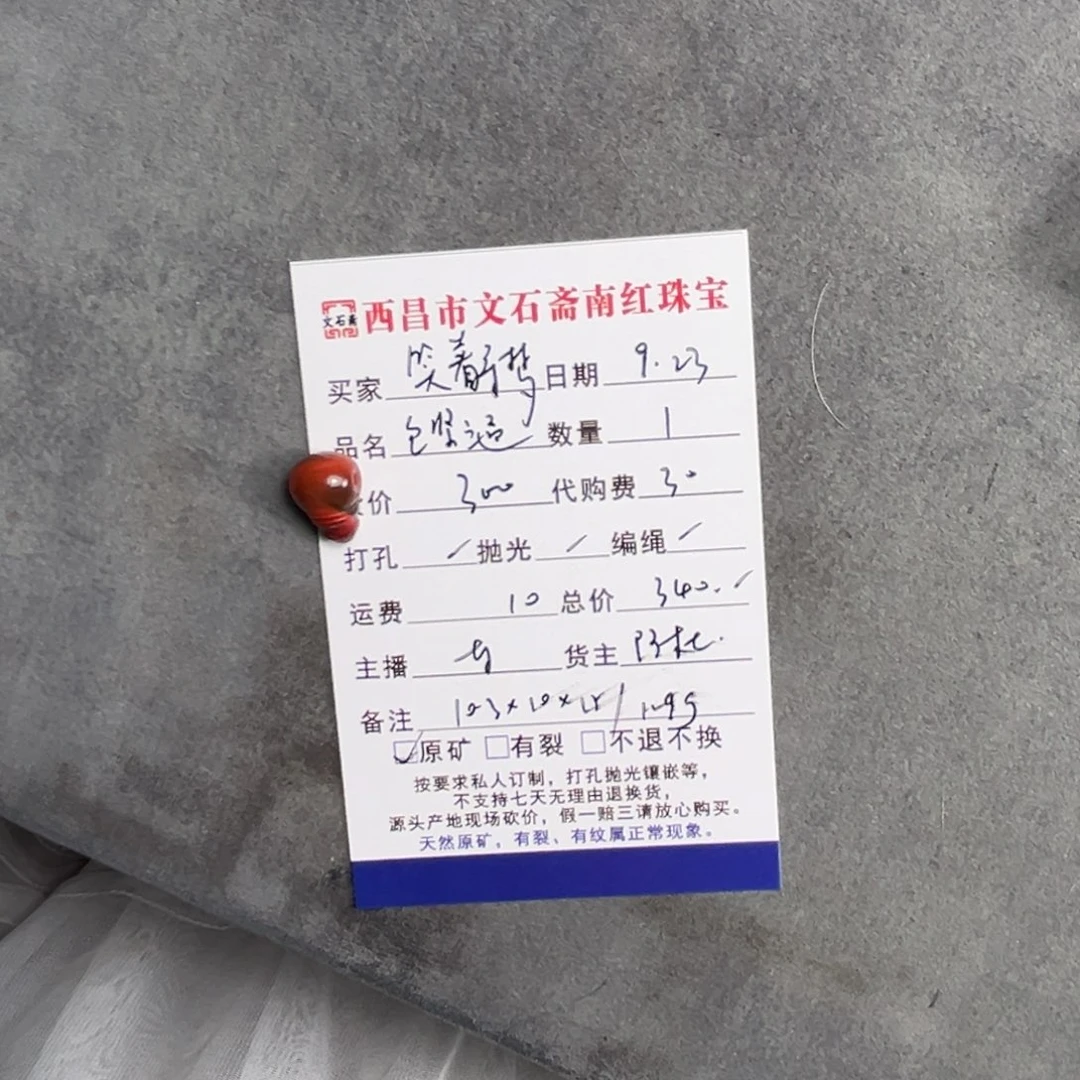 文石斋 西昌市文石斋南红珠宝
买家 笑看 日期 9.23
品名 包浆 数量 1
价 300 代购费 30
打孔 ✓ 抛光 ✓ 编绳 ✓
运费 10 总价 340. ✓
主播 货主
备注
☑原矿 □有裂 □不退不换
按要求私人订制，打孔抛光镶嵌等，
不支持七天无理由退换货，
源头产地现场砍价，假一赔三请放心购买。
天然原矿，有裂、有纹属正常现象。